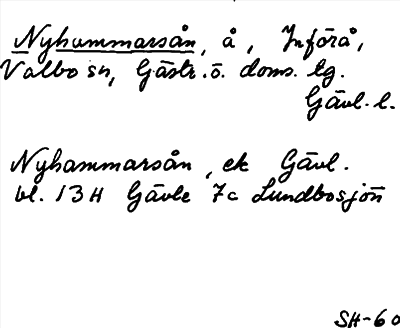 Nyhammarsån, å, Införå,
Valbo sn, Gästr. ö. doms. tg.
Gävl. l.
Nyhammarsån, ek Gävl.
bl. 13H Gävle 7c Lundbosjön
SH-60